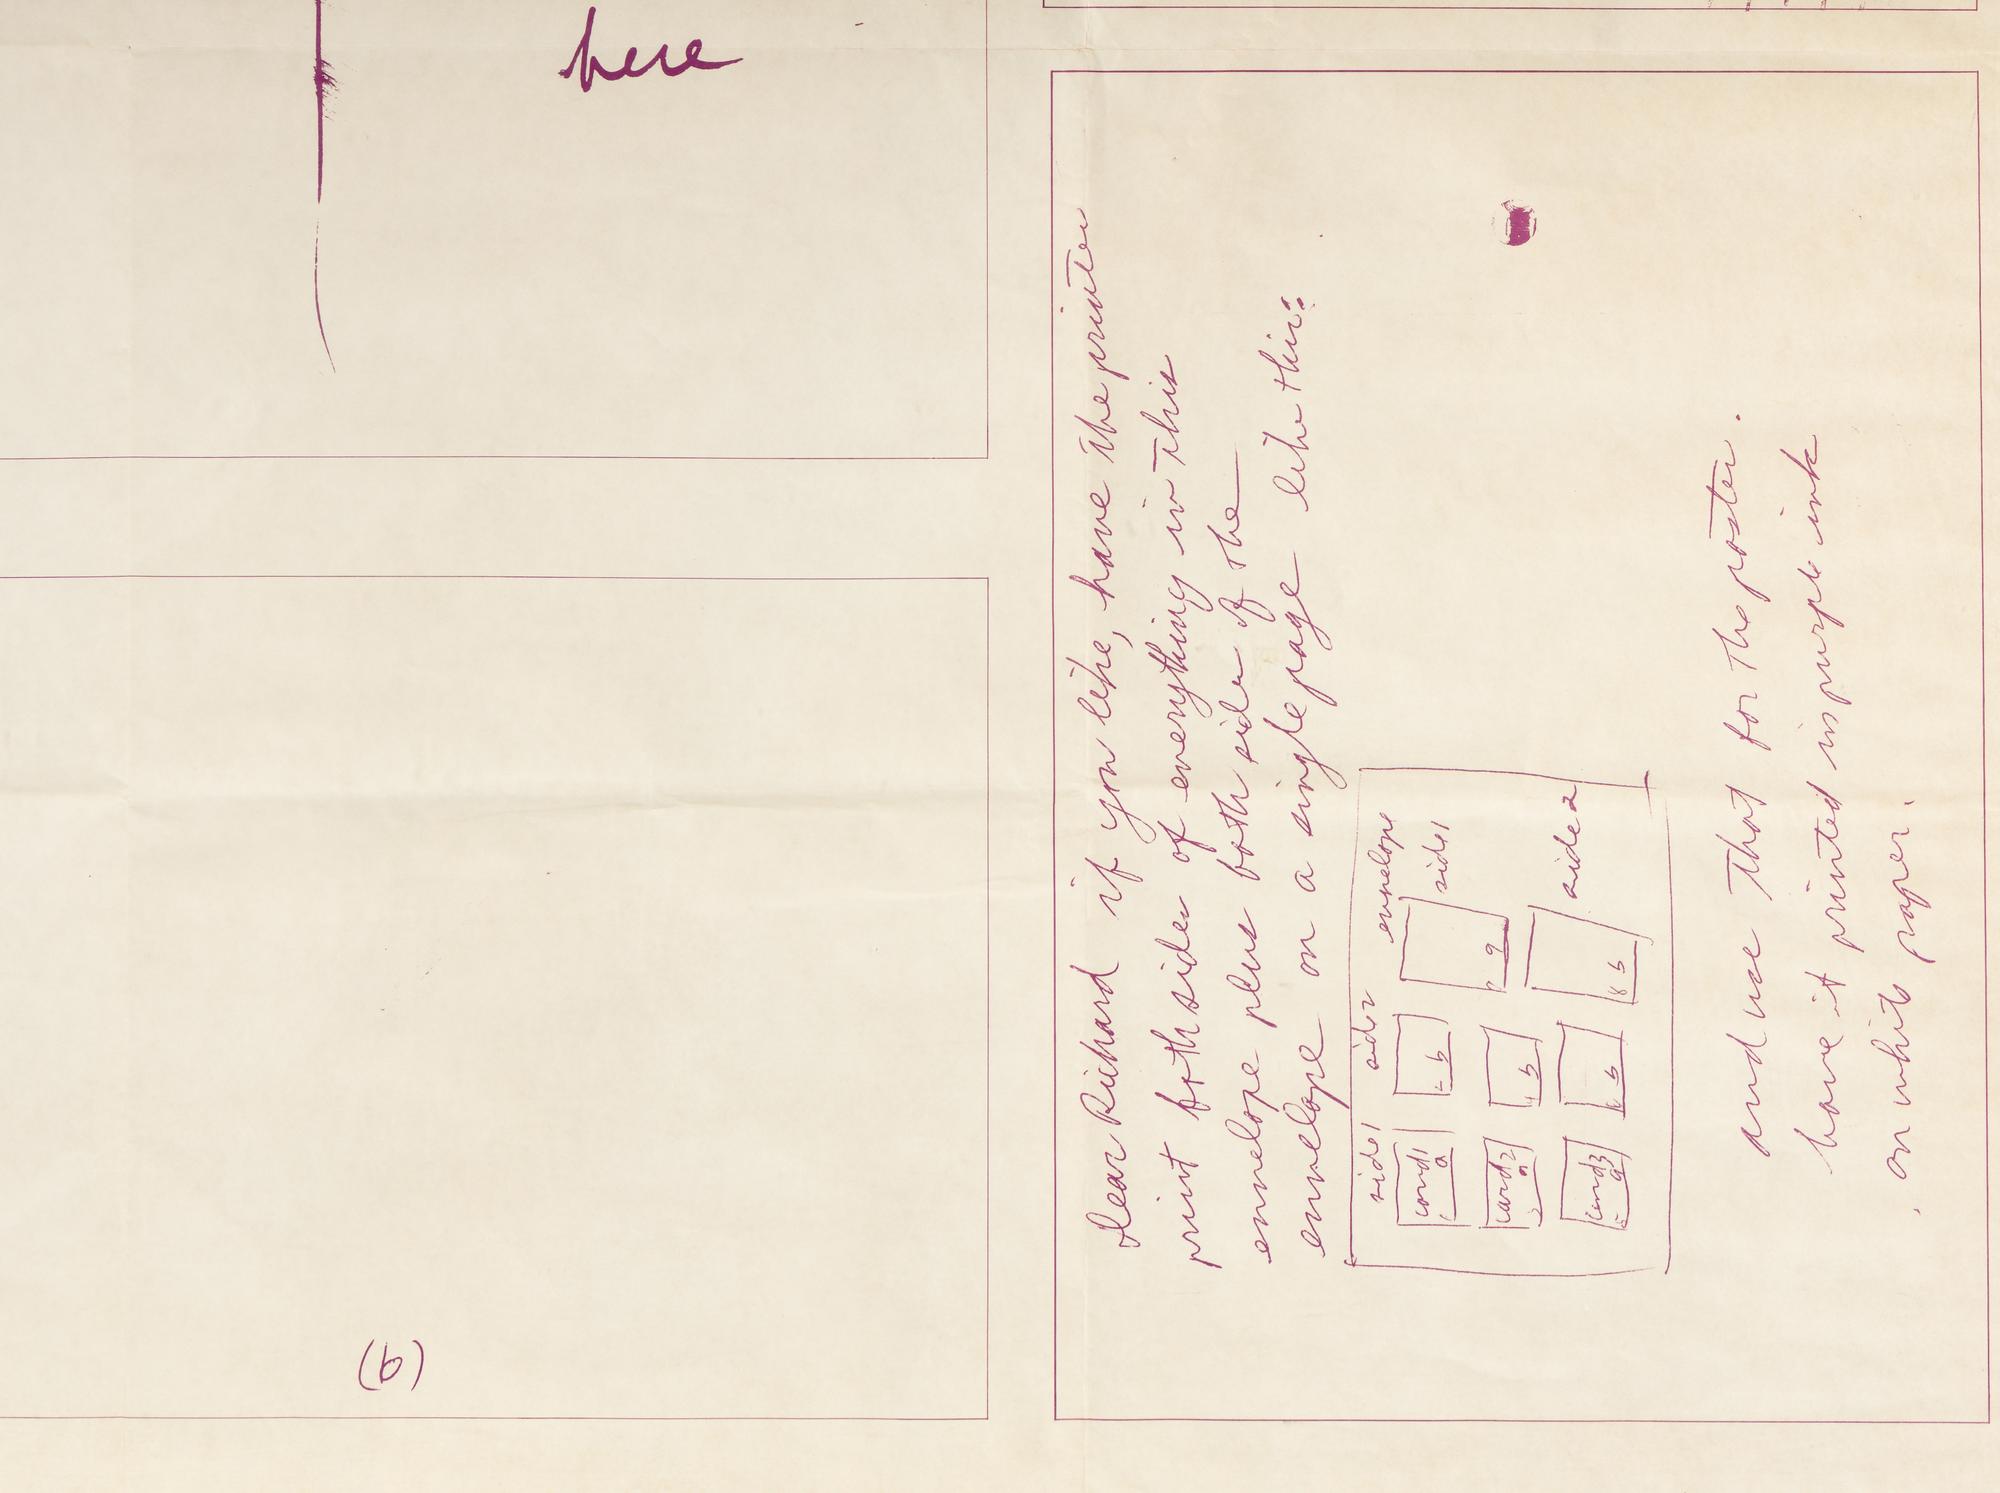 here
(b)
Dear Richard if you like, have the printer
print both sides of everything in this
envelope plus both sides of the
envelope on a single page like this:
side 1 side 2 envelope
card 1 a b side 1
card 2 a b a
card 3 a b b side 2
and use that for the poster.
have it printed in purple ink
on white paper.